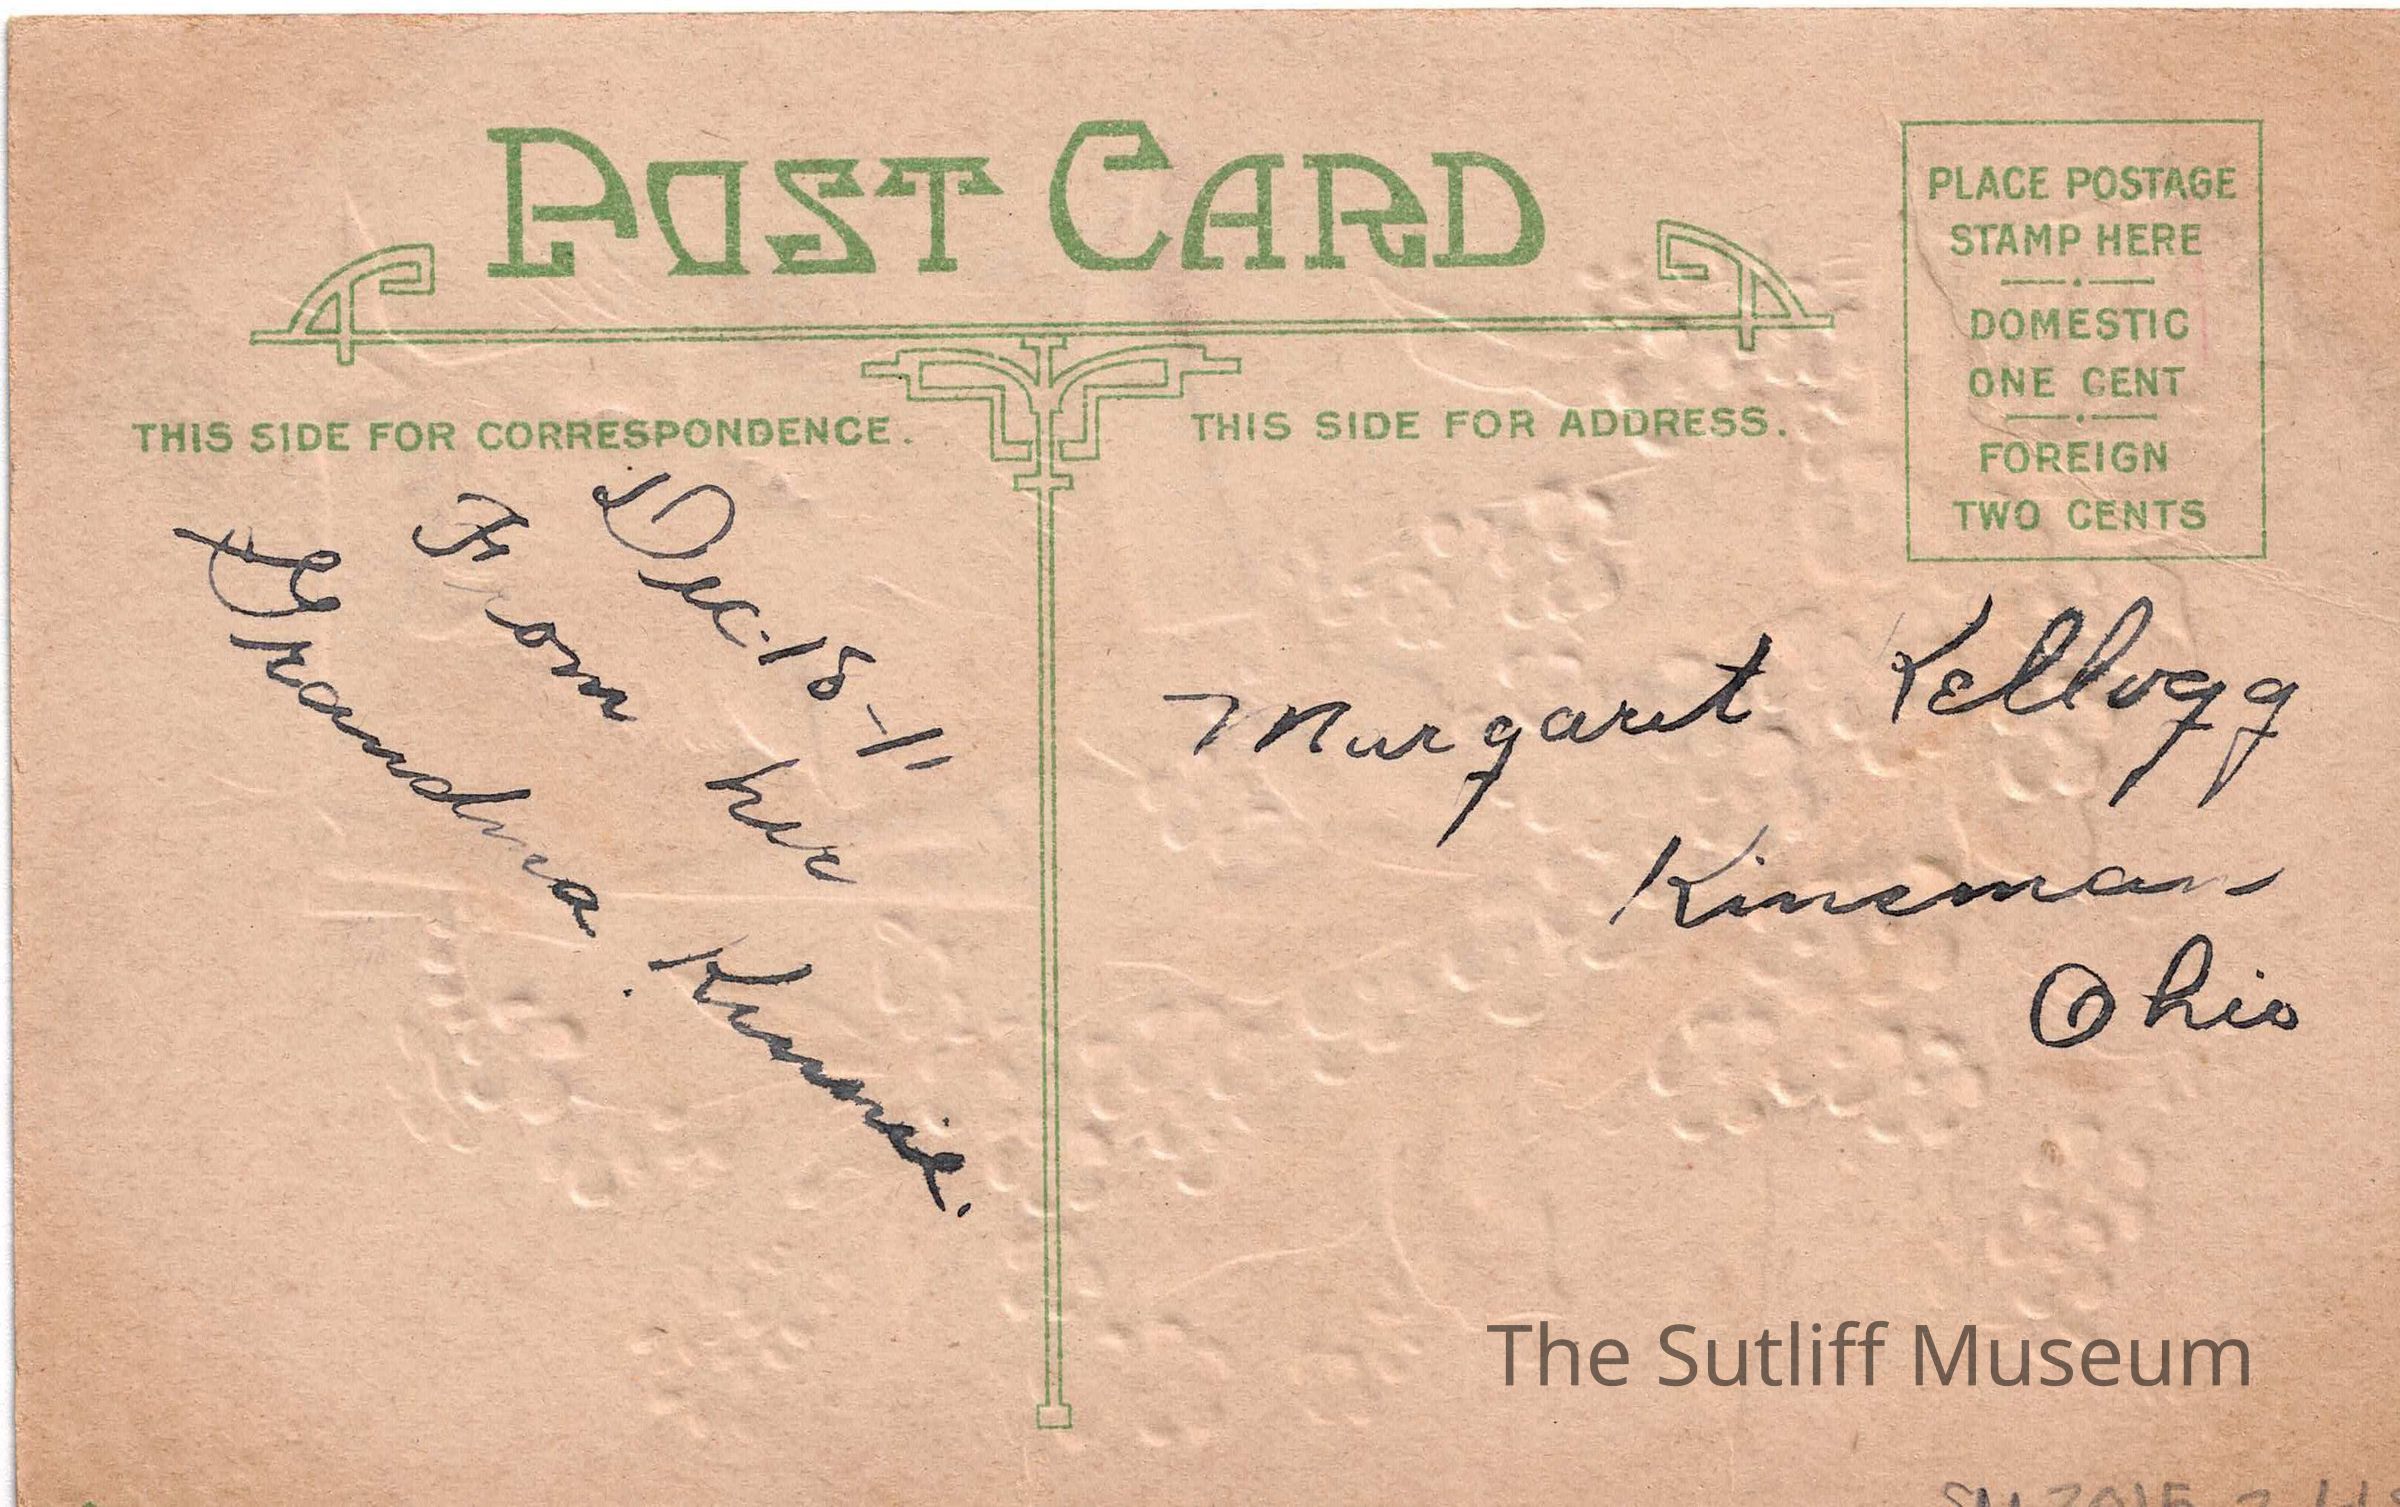 POST CARD
PLACE POSTAGE
STAMP HERE
DOMESTIC
ONE CENT
FOREIGN
TWO CENTS
THIS SIDE FOR CORRESPONDENCE.
THIS SIDE FOR ADDRESS.
Dec. 18-11
From her
Grandma
Margaret Kellogg
Kinsman
Ohio
The Sutliff Museum